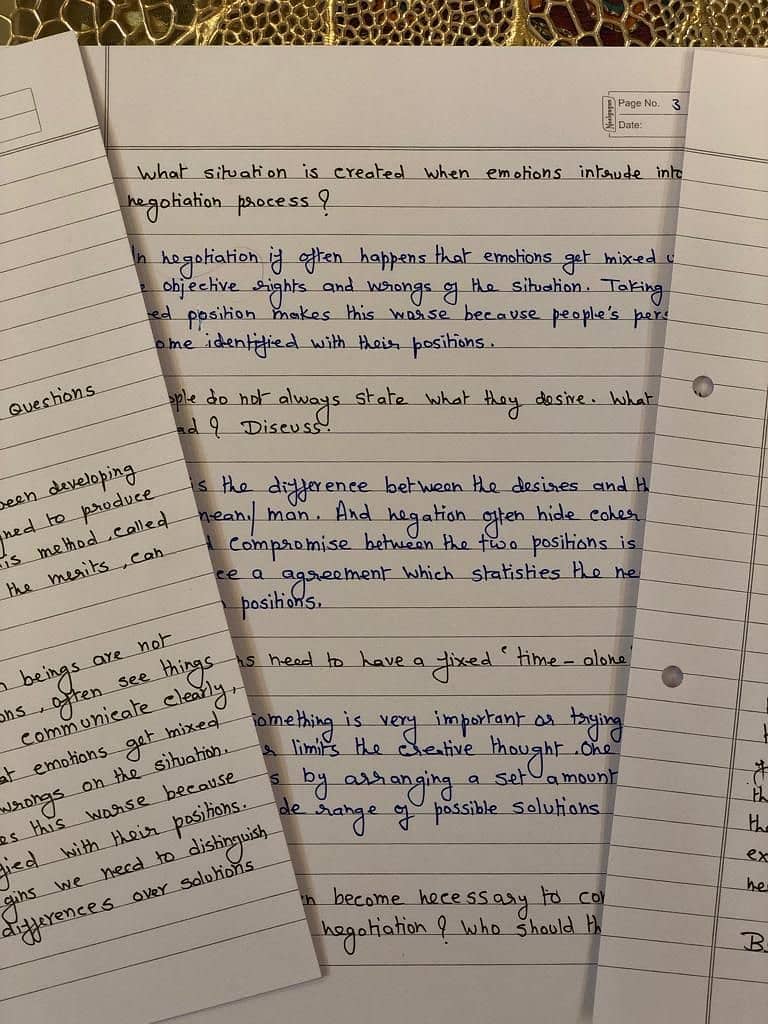 Page No. 3
Date:
What situation is created when emotions intrude into
negotiation process ?
In negotiation if often happens that emotions get mixed
objective rights and wrongs of the situation. Taking
ed position makes this worse because people's pers
ome identified with their positions.
ople do not always state what they desire. What
ad ? Discuss.
is the difference between the desires and th
mean/ man. And negation often hide coher
compromise between the two positions is
ce a agreement which statisties the ne
positions.
ns need to have a fixed 'time - alone'
something is very important or trying
limits the creative thought. One
s by arranging a set amount
de range of possible solutions
n become necessary to con
negotiation ? Who should th
Questions
been developing
ned to produce
is method, called
the merits, can
n beings are not
ons, often see things
communicate clearly,
at emotions get mixed
wrongs on the situation.
es this worse because
fied with their positions.
gins we need to distinguish
differences over solutions
th
the
ex
he
B